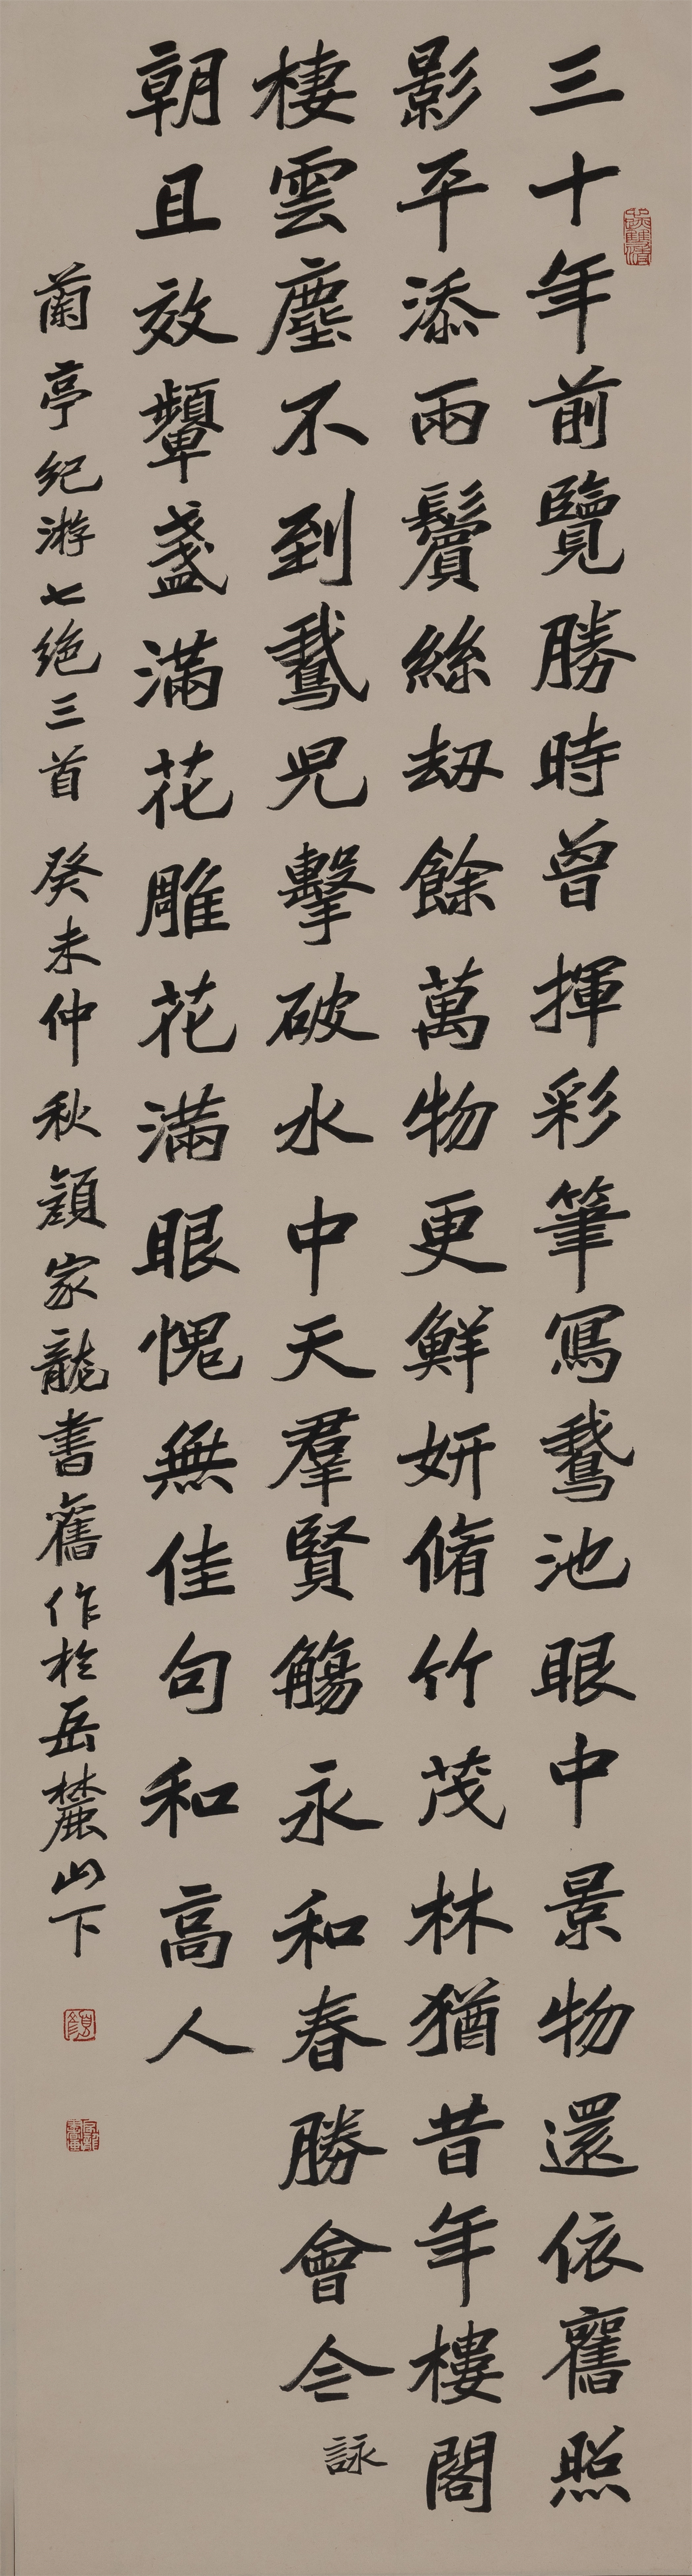 三十年前覽勝時曾揮彩筆寫鵝池眼中景物還依舊照
影平添兩鬢絲劫餘萬物更鮮妍脩竹茂林猶昔年樓閣
棲雲塵不到鵝兒擊破水中天羣賢觴永和春勝會今
詠
朝且效顰盞滿花雕花滿眼愧無佳句和高人
蘭亭紀游七絕三首 癸未仲秋顏家龍書舊作於岳麓山下